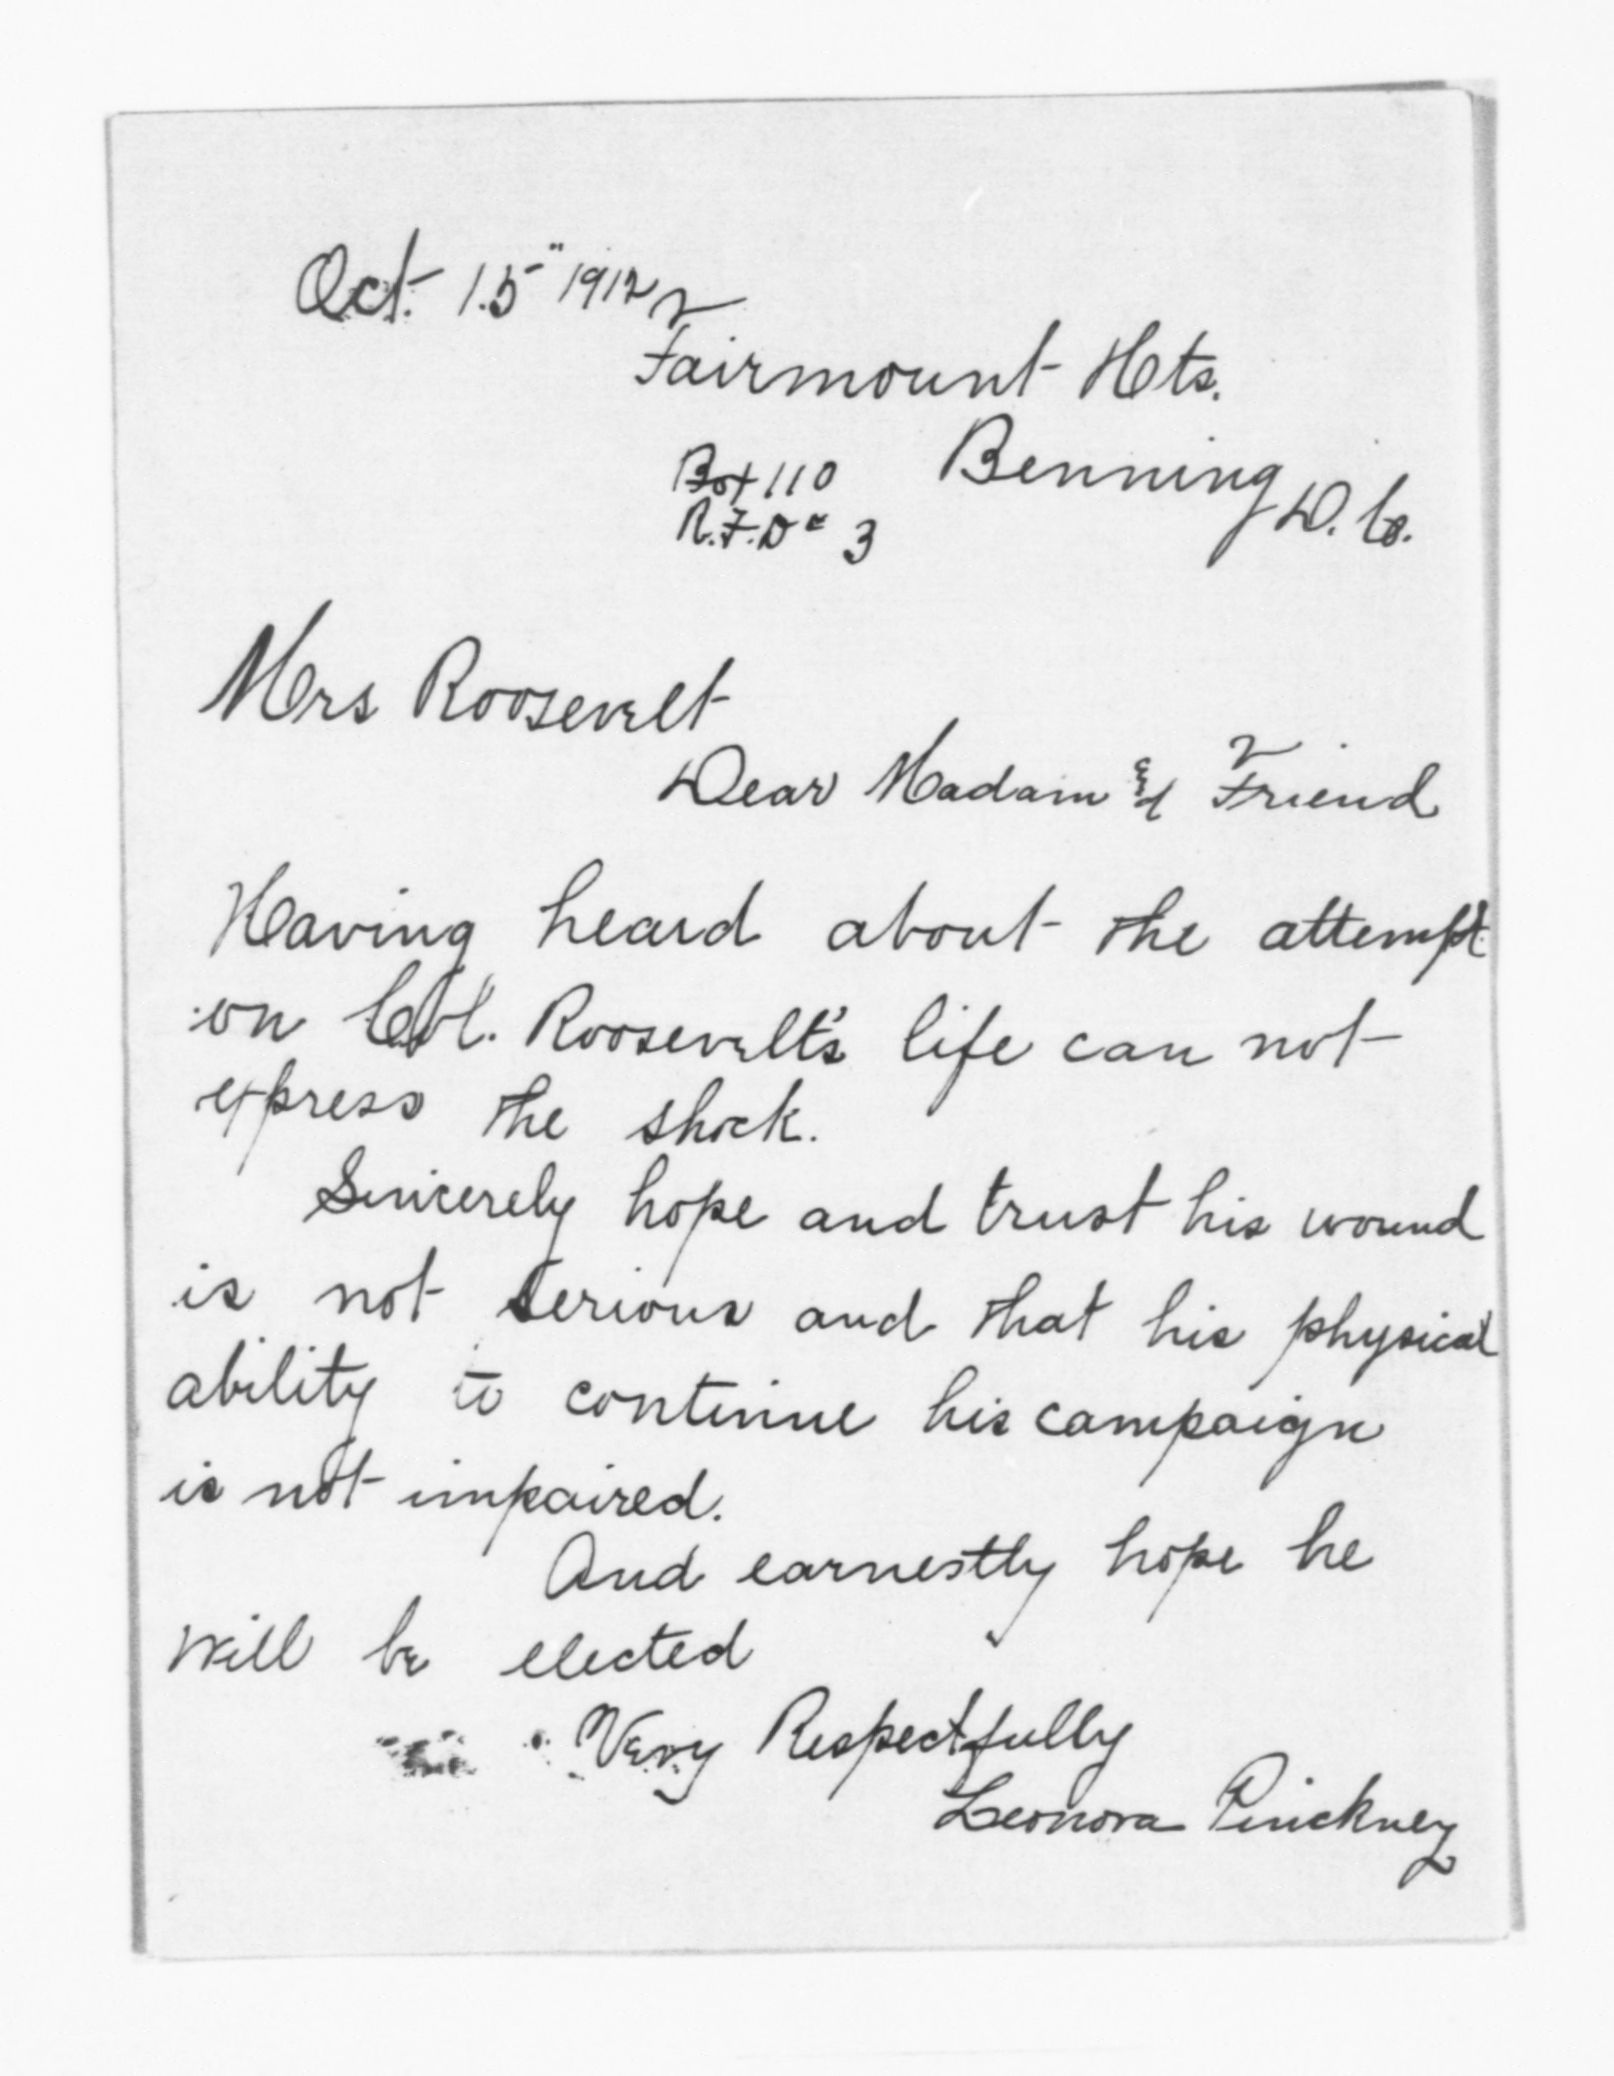 Oct. 15" 1912
Fairmount Hts.
Box 110 Benning D.C.
R.F.D# 3
Mrs Roosevelt
Dear Madam & Friend
Having heard about the attempt
on Col. Roosevelt's life can not
express the shock.
Sincerely hope and trust his wound
is not serious and that his physical
ability to continue his campaign
is not impaired.
And earnestly hope he
will be elected
Very Respectfully
Leonora Pinckney